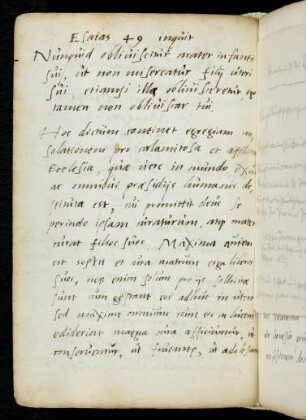 Esaias 49 inquit
Nunquid obliviscitur mater infantis
sui, ut non misereatur filij uteri
sui, etiamsi illa oblivisceretur ego
tamen non obliviscar tui
Hoc dictum continet egregiam con
solationem pro calamitosa et afflicta
Ecclesia, quae vere in mundo
ac omnibus praesidijs humanis de
stituta est, promittit deus se
perinde ipsam curaturum, atque mater
curat filios suos. Maxima autem
est et cura matrum erga liberos
suos, neque enim solum pro ijs sollicitae
sunt cum gestant eos adhuc in utero
sed maxime omnium cum eos in lucem
ediderint magna cura afficiuntur, ut
conserventur, ut